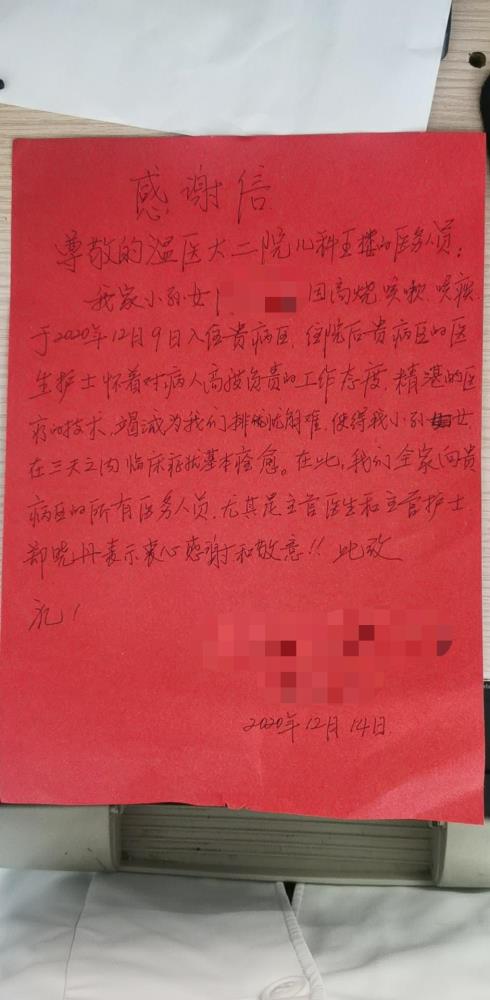 感谢信
尊敬的温医大二院儿科五楼的医务人员：
我家小孙女 因高烧.咳嗽.咳痰
于2020年12月9日入住贵病区.住院后贵病区的医
生护士怀着对病人高度负责的工作态度.精湛的医
疗的技术.竭诚为我们排忧解难.使得我小孙女
在三天之内临床症状基本痊愈。在此,我们全家向贵
病区的所有医务人员.尤其是主管医生和主管护士
郑晓丹表示衷心感谢和敬意!! 此致
礼!
2020年12月14日.